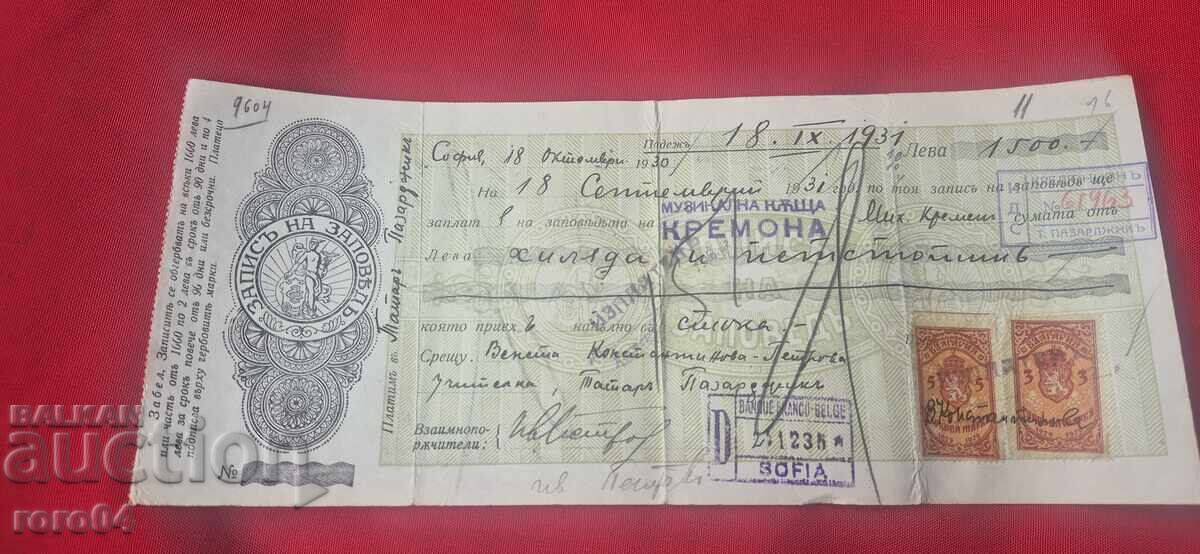 9604
11
16
Забел. Записитѣ се обгербватъ на всѣки 1660 лева
или часть отъ 1660 по 2 лева за срокъ отъ 90 дни и по 4
лева за срокъ повече отъ 90 дни или безсрочни. Платеца
подписва върху гербовитѣ марки.
ЗАПИСЪ НА ЗАПОВѢДЬ
№
Платимъ въ Татаръ Пазарджикъ
Падежъ 18. IX. 1931
София, 18 Октомври 1930
Лева 1500.-
На 18 Септемврий 1931 год. по тоя запись на заповѣдь ще
заплат на заповѣдьта на
МУЗИКАЛНА КѪЩА
КРЕМОНА
Мих. Кремен сумата отъ
Д. № 61963
Т. ПАЗАРДЖИКЪ
Лева хиляда и петстотинъ
която приех напълно въ стока.-
ИЗПЛАТЕН
Срещу Венета Константинова-Петрова
Учителка, Татаръ Пазарджикъ
Взаимнопо-
рѫчители:
D
BANQUE FRANCO-BELGE
SOFIA
БЪЛГАРИЯ
5 5
БЪЛГАРИЯ
3 3
BALKAN
auction
roro04